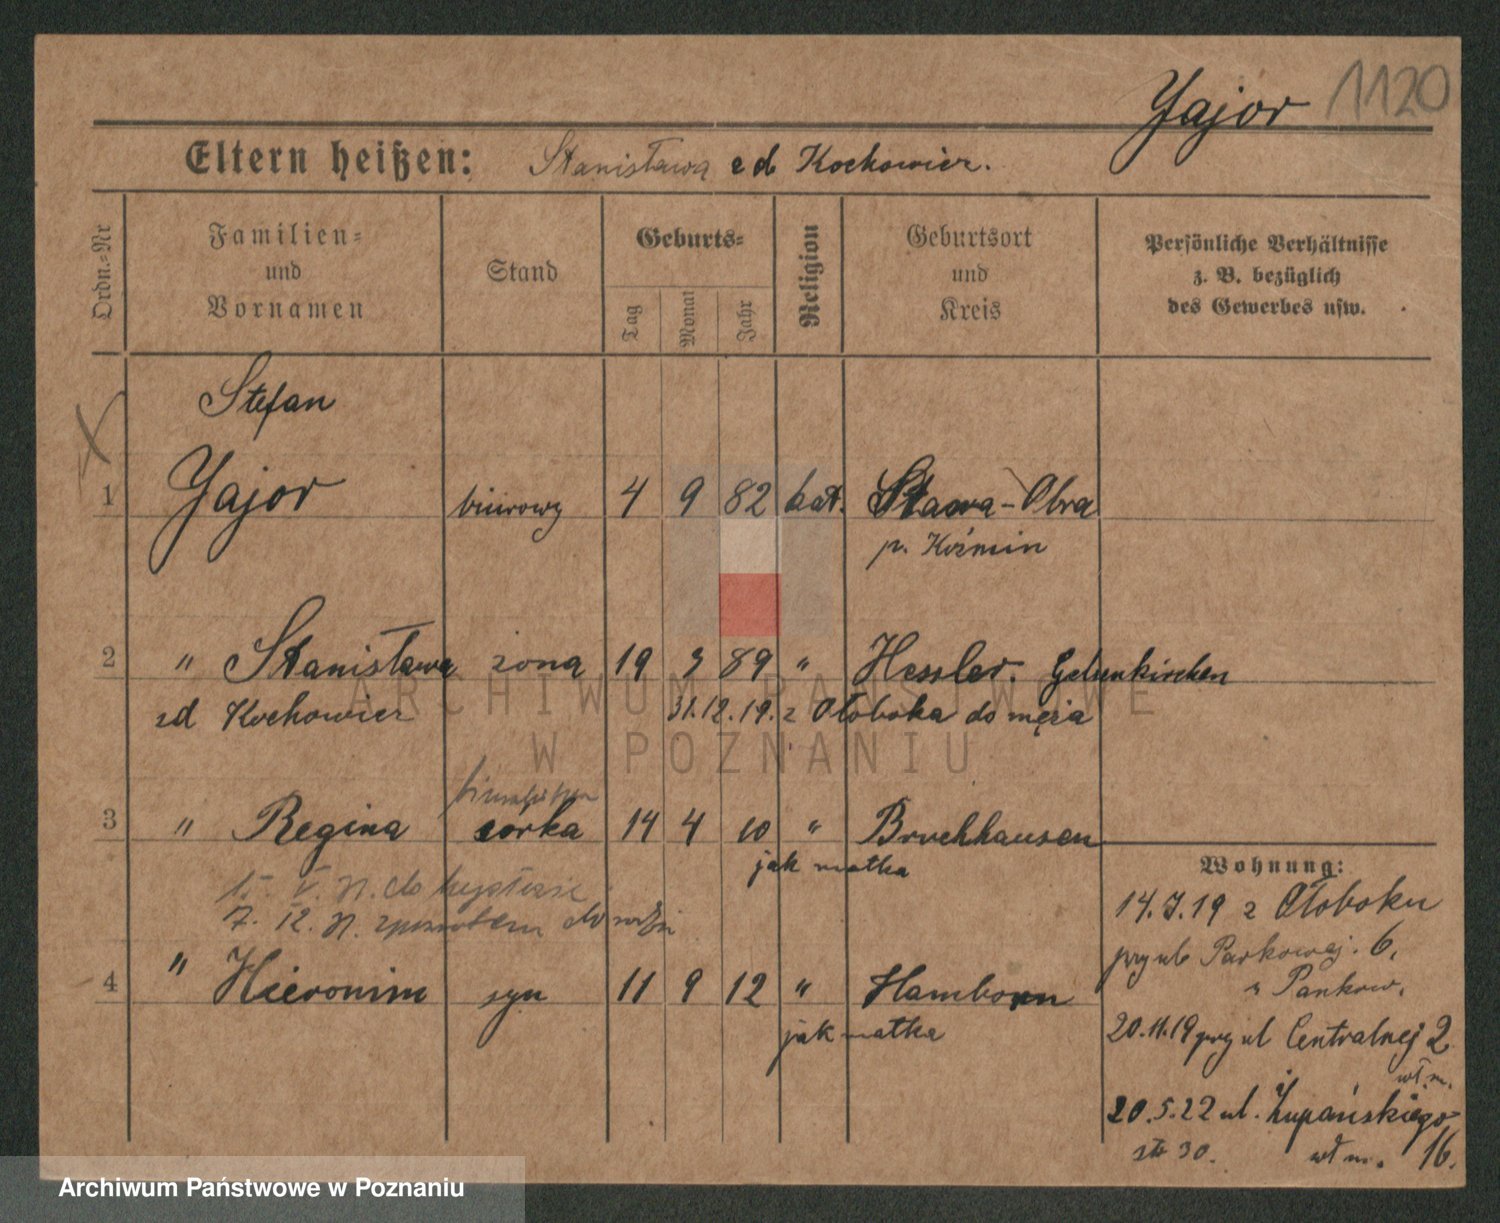 Yajor 1120
Eltern heißen: Stanisława z d Kochowicz.
Ordn.-Nr
Familien-
und
Vornamen
Stand
Geburts-
Tag
Monat
Jahr
Religion
Geburtsort
und
Kreis
Persönliche Verhältnisse
z. B. bezüglich
des Gewerbes usw.
Stefan
1 Yajor biurowy 4 9 82 kat. Stara-Obra
p. Koźmin
2 " Stanisława żona 19 3 89 " Hessler. Gelsenkirchen
zd Kochowicz 31.12.19. z Ołoboka do męża
3 " Regina córka 14 4 10 " Bruchhausen
jak matka
do
do
4 " Hieronim syn 11 9 12 " Hamborn
jak matka
Wohnung:
14.7.19 z Ołoboku
przy ul Parkowej. 6,
Pankow.
20.11.19 przy ul Centralnej 2
wł. m.
20.5.22 ul. Żupańskiego
30. wł m. 16.
ARCHIWUM PAŃSTWOWE
W POZNANIU
Archiwum Państwowe w Poznaniu